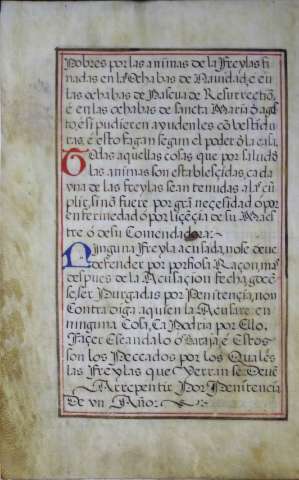 Pobres por las animas de la Freylas fi
nadas en las Ochabas de Navidad, e en
las ochabas de Pascua de Resurrection,
e en las ochabas de sancta Maria d ag
to, e si pudieren ayudenles cõ bestidu
ras, e esto fagan segun el poder d la casa,
Todas aquellas cosas que por salud d
las animas son establesçidas, cada
vna de las freylas sean tenudas a las cũ
plir, si nõ fuere por grã neçesidad o por
enfermedad o por liçençia de su Maes
tre o de su Comendadora.
Ninguna Freyla acusada, no se deue
defender por porfiosa Raçon, mas
despues de la Acusaçion fecha,
se, ser Purgadas por Penitencia, non
Contradiga, a quien la Acusare en
ninguna Cosa, Ca Podria por Ello,
façer Escandalo o Baraja, e Estos
son los Peccados por los Quales
las Freylas que Verran se Deuẽ
Arrepentir Por Penitencia
De vn Año.